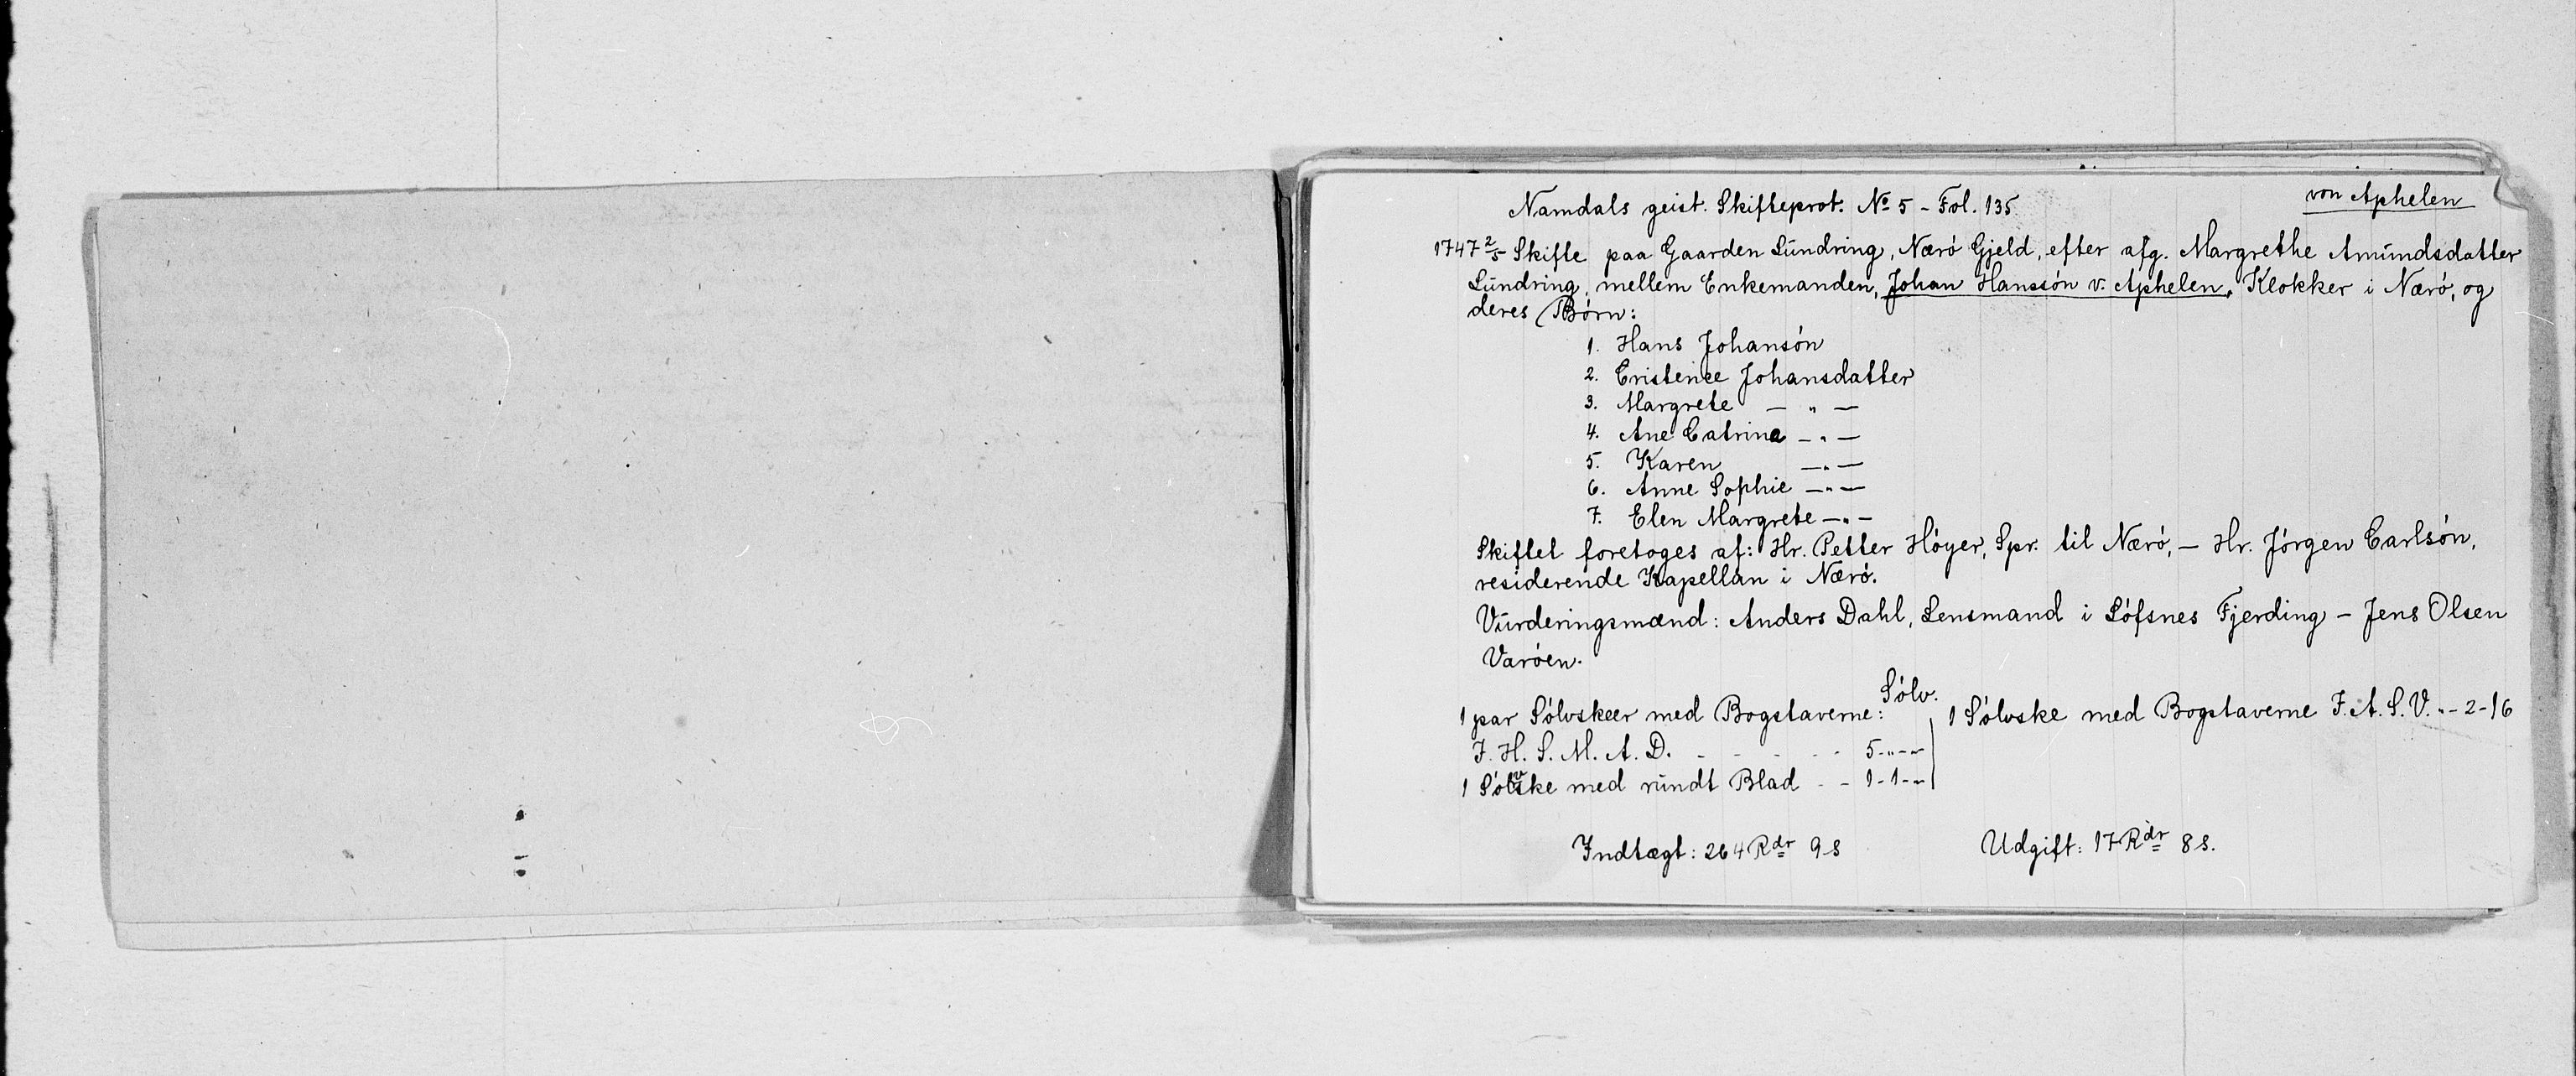 von Aphelen
Namdals geist. Skifteprot. No 5 - Fol. 135
1747 2/5 Skifte paa Gaarden Lundring, Nærö Gjeld, efter afg. Margrethe Amundsdatter
Lundring, mellem Enkemanden, Johan Hanssön v. Aphelen, Klokker i Nærö, og
deres Börn:
1. Hans Johansön
2. Cristence Johansdatter
3. Margrete — " —
4. Ane Catrina — " —
5. Karen — " —
6. Anne Sophie — " —
7. Elen Margrete — " —
Skiftet foretoges af: Hr. Petter Höyer, Spr. til Nærö, — Hr. Jörgen Carlsön,
residerende Kapellan i Nærö.
Vurderingsmænd: Anders Dahl, Lensmand i Löfsnes Fjerding — Jens Olsen
Varöen.
Sölv.
1 par Sölvskeer med Bogstaverne:
J. H. S. M. A. D. - - - - - 5-"-"
1 Sölvske med rundt Blad - - 1-1-"
1 Sölvske med Bogstaverne J. A. S. V. "-2-16
Indtægt: 264 Rdr 9 s
Udgift: 17 Rdr 8 s.